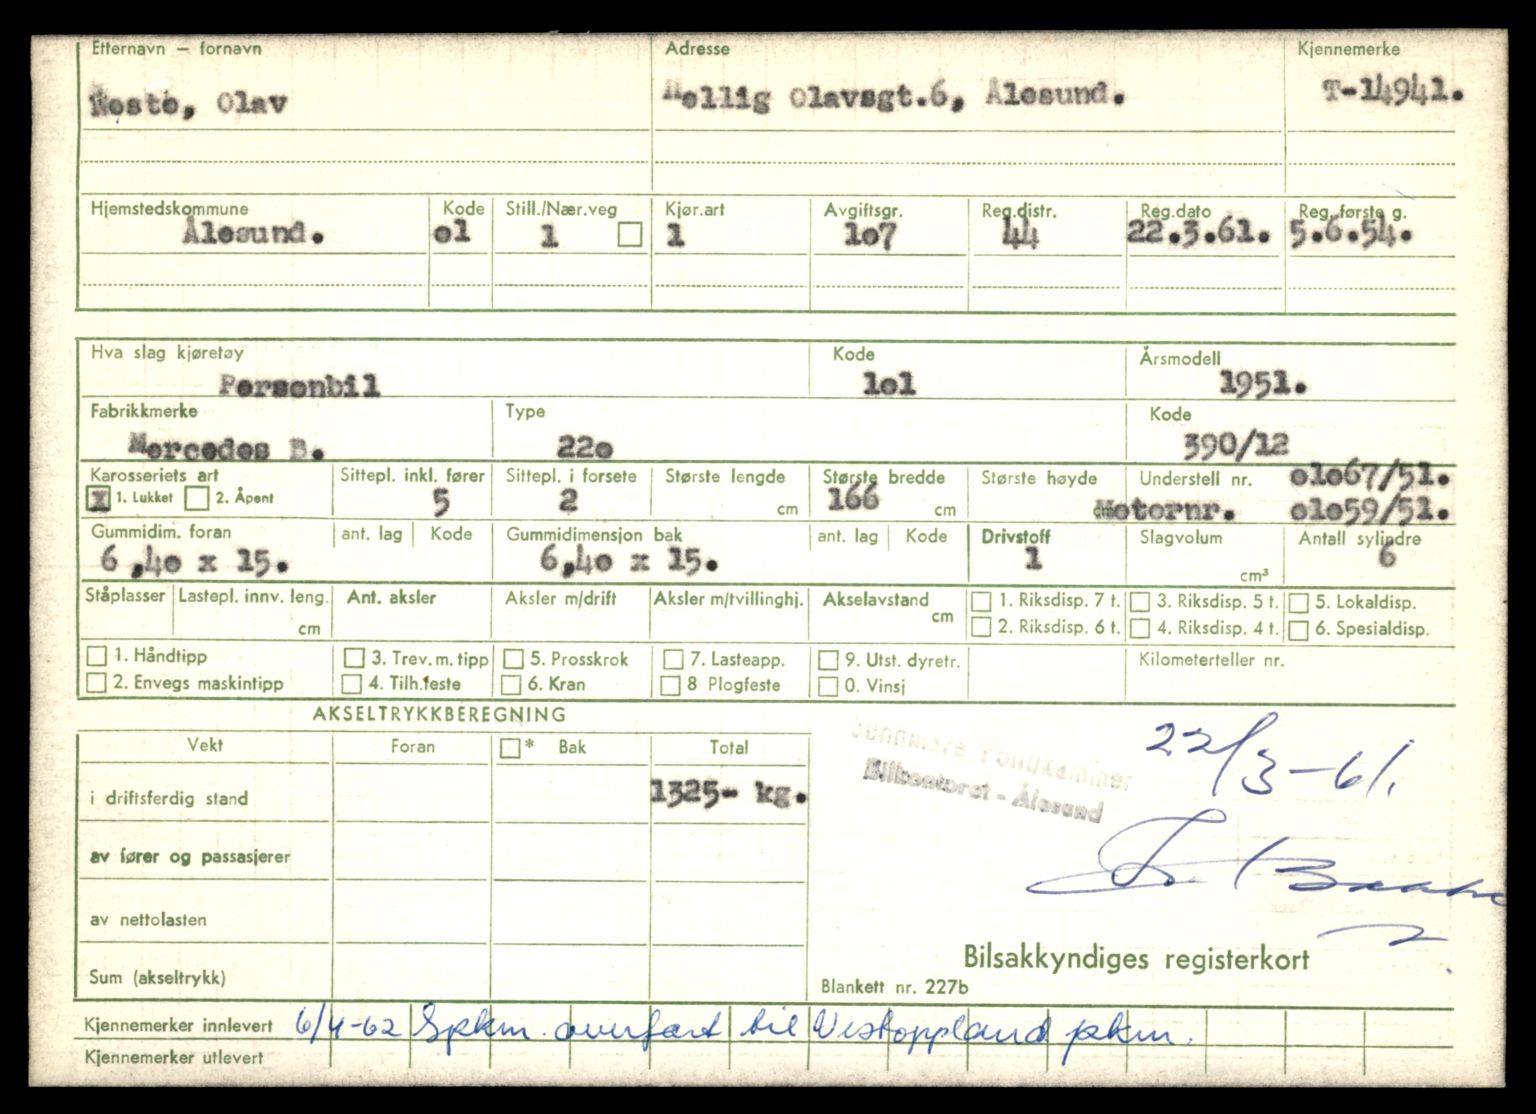 Etternavn — fornavn Adresse Kjennemerke
Neste, Olav Hellig Olavsgt.6, Ålesund. T-14941.
Hjemstedskommune Kode Still./Nær.veg Kjør.art Avgiftsgr. Reg.distr. Reg.dato Reg. første g.
Ålesund. o1 1 1 1o7 44 22.3.61. 5.6.54.
Hva slag kjøretøy Kode Årsmodell
Personbil 1o1 1951.
Fabrikkmerke Type Kode
Mercedes B. 22o 390/12
Karosseriets art Sittepl. inkl. fører Sittepl. i forsete Største lengde Største bredde Største høyde Understell nr. o1o67/51.
X 1. Lukket 2. Åpent 5 2 cm 166 cm cm Motornr. o1o59/51.
Gummidim. foran ant. lag Kode Gummidimensjon bak ant. lag Kode Drivstoff Slagvolum Antall sylindre
6,4o x 15. 6,4o x 15. 1 cm³ 6
Ståplasser Lastepl. innv. leng. cm Ant. aksler Aksler m/drift Aksler m/tvillinghj. Akselavstand cm 1. Riksdisp. 7 t. 3. Riksdisp. 5 t. 5. Lokaldisp.
2. Riksdisp. 6 t. 4. Riksdisp. 4 t. 6. Spesialdisp.
1. Håndtipp 3. Trev. m. tipp 5. Prosskrok 7. Lasteapp. 9. Utst. dyretr. Kilometerteller nr.
2. Envegs maskintipp 4. Tilh.feste 6. Kran 8 Plogfeste 0. Vinsj
AKSELTRYKKBEREGNING
Vekt Foran * Bak Total
i driftsferdig stand 1325- kg.
av fører og passasjerer
av nettolasten
Sum (akseltrykk)
22/3-61.
Bilkontoret - Ålesund
Bilsakkyndiges registerkort
Blankett nr. 227b
Kjennemerker innlevert 6/4-62 Spkm. overført til Vestoppland pkm.
Kjennemerker utlevert